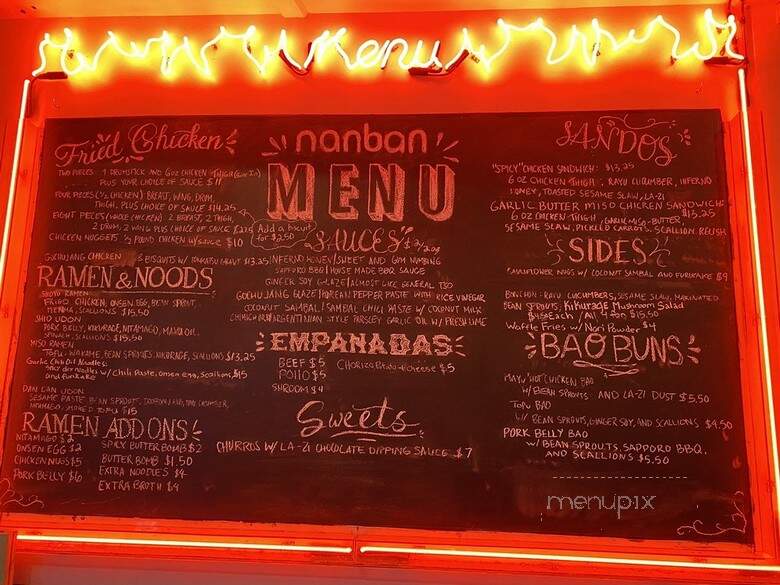 Menu
Fried Chicken
TWO PIECES 1 DRUMSTICK AND 6OZ CHICKEN THIGH
PLUS YOUR CHOICE OF SAUCE $11
FOUR PIECES (½ CHICKEN) BREAST, WING, DRUM,
THIGH, PLUS CHOICE OF SAUCE $14.25
EIGHT PIECES (WHOLE CHICKEN) 2 BREAST, 2 THIGH,
2 DRUM, 2 WING PLUS CHOICE OF SAUCE
Add a biscuit
for $2.50
CHICKEN NUGGETS ½ POUND CHICKEN W/SAUCE $10
GOCHUJANG CHICKEN & BISCUITS W/ GRAVY $13.25
RAMEN & NOODS
SHOYU RAMEN
FRIED CHICKEN, ONSEN EGG, BEAN SPROUT,
MENMA, SCALLIONS $15.50
SHIO UDON
PORK BELLY, KIKURAGE, NITAMAGO, MAYU OIL,
SPINACH, SCALLIONS $15.50
MISO RAMEN
TOFU, WAKAME, BEAN SPROUTS, KIKURAGE, SCALLIONS $13.25
Garlic Chili Oil Noodles
W/ Chili Paste, onsen egg, Scallions, $15
and furikake
DAN DAN UDON
SESAME PASTE, BEAN SPROUT, CUCUMBER,
NITAMAGO, TOFU $15
RAMEN ADD ONS
NITAMAGO $2
ONSEN EGG $2
CHICKEN NUGS $5
PORK BELLY $6
SPICY BUTTER BOMB $2
BUTTER BOMB $1.50
EXTRA NOODLES $4
EXTRA BROTH $4
nanban
MENU
SAUCES
INFERNO HONEY | SWEET AND GOM NUMBING
SAPPORO BBQ | HOUSE MADE BBQ SAUCE
GINGER SOY GLAZE | ALMOST LIKE GENERAL TSO
GOCHUJANG GLAZE | KOREAN PEPPER PASTE WITH RICE VINEGAR
COCONUT SAMBAL | SAMBAL CHILI PASTE W/ COCONUT MILK
CHIMICHURRI | ARGENTINIAN STYLE PARSLEY GARLIC OIL W/ FRESH LIME
EMPANADAS
BEEF $5
POLLO $5
SHROOM $4
CHORIZO Potato + Cheese $5
Sweets
CHURROS W/ LA-ZI CHOCOLATE DIPPING SAUCE $7
SANDOS
"SPICY" CHICKEN SANDWICH: $13.25
6 OZ CHICKEN THIGH, RAYU CUCUMBER, INFERNO
HONEY, TOASTED SESAME SLAW, LA-ZI
GARLIC BUTTER MISO CHICKEN SANDWICH:
$13.25
6 OZ CHICKEN THIGH, GARLIC MISO-BUTTER,
SESAME SLAW, PICKLED CARROTS, SCALLION RELISH
SIDES
CAULIFLOWER WINGS W/ COCONUT SAMBAL AND FURIKAKE $9
BANCHAN: RAYU CUCUMBERS, SESAME SLAW, MARINATED
BEAN SPROUTS, Kikurage Mushroom Salad
Each / All 4 for $15.50
Waffle Fries w/ Nori Powder $4
BAO BUNS
MAYU "HOT" CHICKEN BAO
W/ BEAN SPROUTS AND LA-ZI DUST $5.50
TOFU BAO
W/ BEAN SPROUTS, GINGER SOY, AND SCALLIONS $4.50
PORK BELLY BAO
W/ BEAN SPROUTS, SAPPORO BBQ,
AND SCALLIONS $5.50
menupix